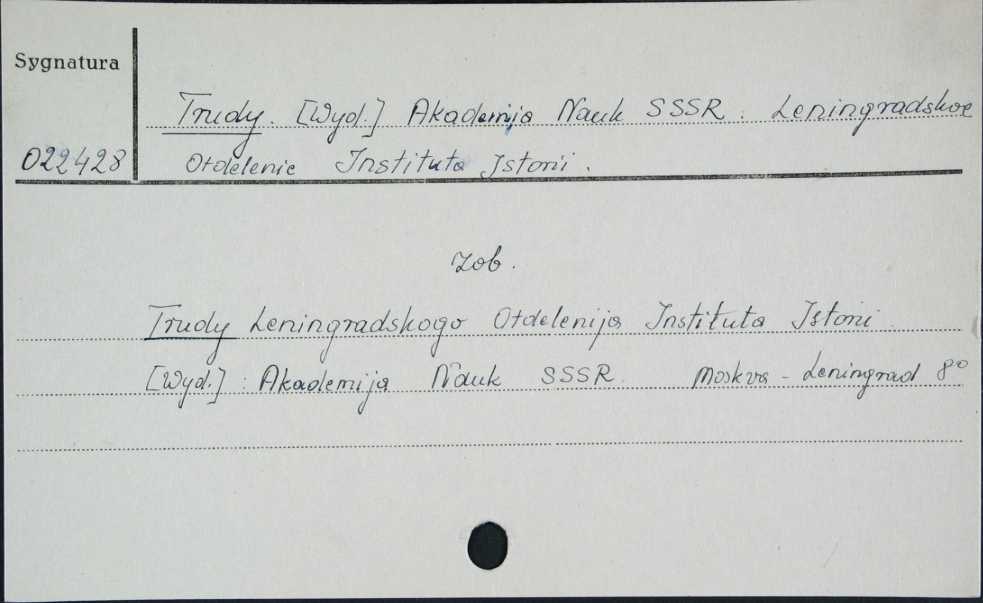 Sygnatura
Trudy. [Wyd.] Akademija Nauk SSSR. Leningradskoe
022428 Otdelenie Instituta Istorii.
Zob.
Trudy Leningradskogo Otdelenija Instituta Istorii.
[Wyd.]: Akademija Nauk SSSR. Moskva - Leningrad 8°